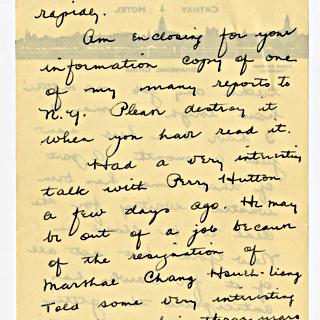 CATHAY HOTEL
SHANGHAI, CHINA
rapidly.
Am enclosing for your
information copy of one
of my many reports to
N.Y. Please destroy it
when you have read it.
Had a very interesting
talk with Perry Hutton
a few days ago. He may
be out of a job because
of the resignation of
Marshal Chang Hsueh-liang
Told some very interesting
three years